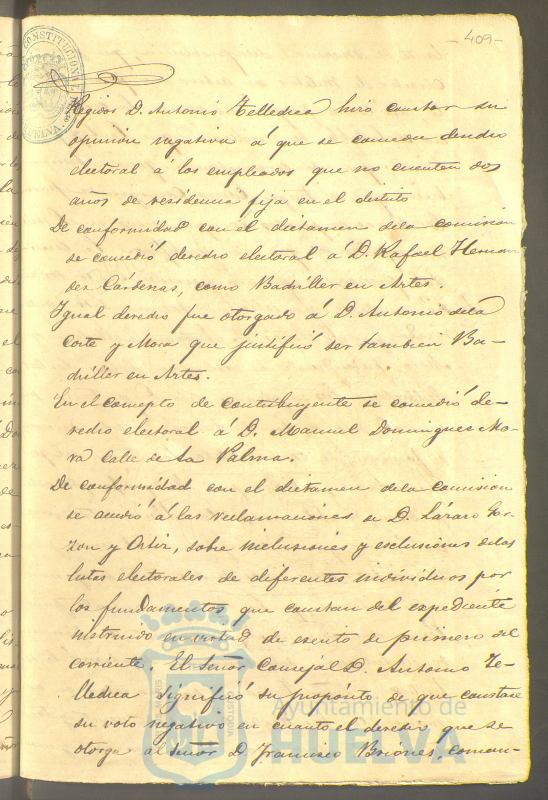 -409-
CONSTITUCIONAL
Regidor D. Antonio Telledrea hizo constar su
opinion negativa á que se conceda derecho
electoral á los empleados que no cuenten dos
años de residencia fija en el distrito
De conformidad con el dictamen dela comision
se concedió derecho electoral á D. Rafael Hernan
dez Cárdenas, como Bachiller en Artes.
Igual derecho fue otorgado á D. Antonio dela
Corte y Mora que justificó ser tambien Ba-
chiller en Artes.
En el concepto de contribuyente se concedió de-
recho electoral á D. Manuel Dominguez Mo-
ra Calle de La Palma.
De conformidad con el dictamen dela comision
se accedió á las reclamaciones de D. Lázaro Gar-
zon y Ortiz, sobre inclusiones y esclusiones delas
listas electorales de diferentes individuos por
los fundamentos que constan del expediente
instruido en virtud de escrito de primero del
corriente. El Señor Concejal D. Antonio Te-
lledrea significó su proposito de que constase
su voto negativo en cuanto el derecho que se
otorga al Señor D. Francisco Briones, coman-
Ayuntamiento de
HUELVA